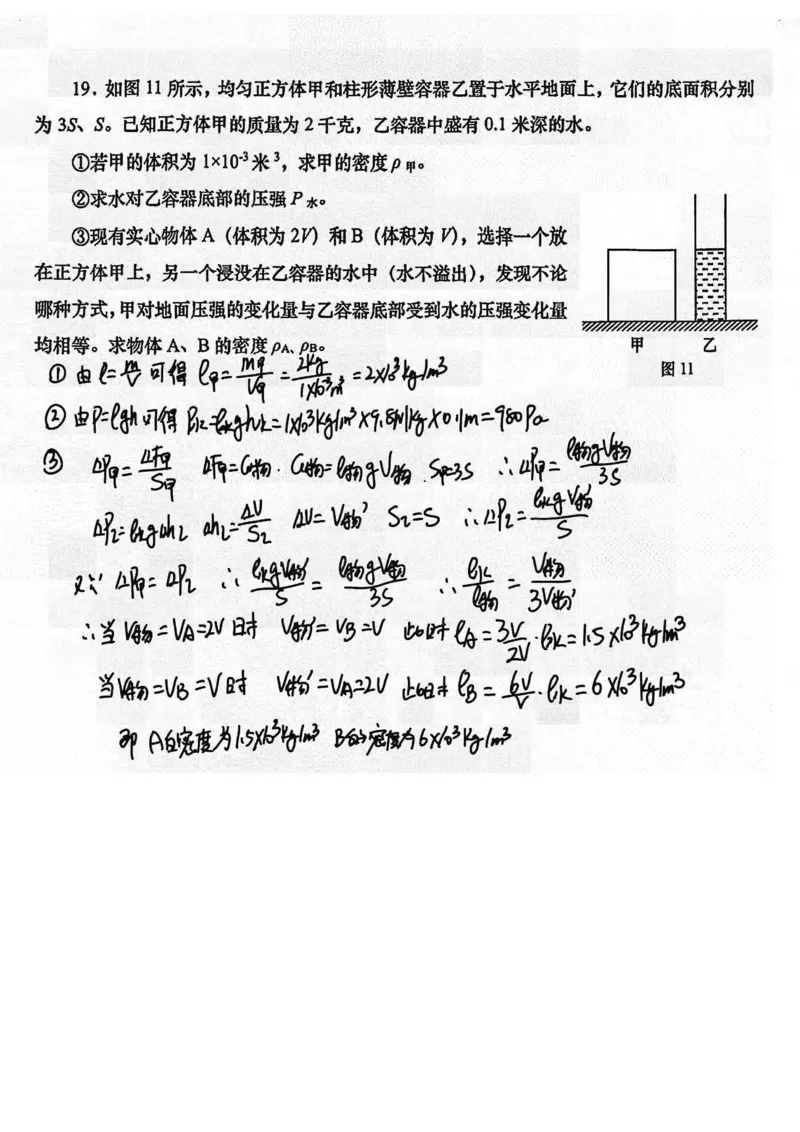 19. 如图 11 所示，均匀正方体甲和柱形薄壁容器乙置于水平地面上，它们的底面积分别
为 3S、S。已知正方体甲的质量为 2 千克，乙容器中盛有 0.1 米深的水。
①若甲的体积为 1×10⁻³米³，求甲的密度ρ甲。
②求水对乙容器底部的压强 P水。
③现有实心物体 A（体积为 2V）和 B（体积为 V），选择一个放
在正方体甲上，另一个浸没在乙容器的水中（水不溢出），发现不论
哪种方式，甲对地面压强的变化量与乙容器底部受到水的压强变化量
均相等。求物体 A、B 的密度ρA、ρB。
甲 乙
图 11
① 由ρ=m/V 可得 ρ甲=m甲/V甲=2kg/1×10⁻³m³=2×10³kg/m³
② 由P=ρgh可得 P水=ρ水gh水=1×10³kg/m³×9.8N/kg×0.1m=980Pa
③ ΔP甲=ΔF甲/S甲 ΔF甲=G物. G物=ρ物gV物. S甲=3S ∴ΔP甲=ρ物gV物/3S
ΔP乙=ρ水gΔh乙 Δh乙=ΔV/S乙 ΔV=V物' S乙=S ∴ΔP乙=ρ水gV物'/S
又∵ΔP甲=ΔP乙 ∴ρ水gV物'/S=ρ物gV物/3S ∴ρ水/ρ物=V物/3V物'
∴当V物=VA=2V时 V物'=VB=V 此时ρA=3V/2V·ρ水=1.5×10³kg/m³
当V物=VB=V时 V物'=VA=2V 此时ρB=6V/V·ρ水=6×10³kg/m³
即 A的密度为1.5×10³kg/m³ B的密度为6×10³kg/m³